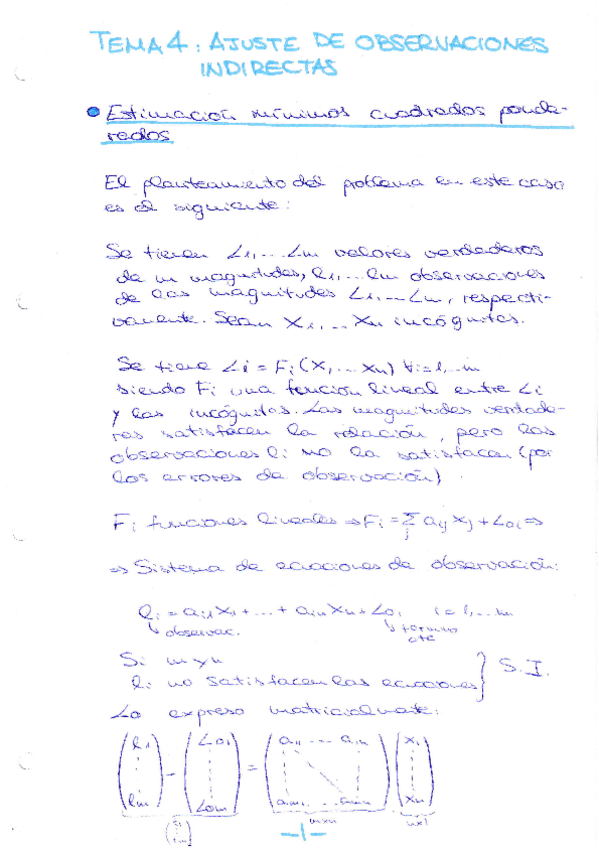 TEMA 4: AJUSTE DE OBSERVACIONES
INDIRECTAS
• Estimación mínimos cuadrados ponde-
rados
El planteamiento del problema en este caso
es el siguiente:
Se tienen L1, ... Lm valores verdaderos
de m magnitudes, l1, ... lm observaciones
de las magnitudes L1, ... Lm, respecti-
vamente. Sean X1, ... Xn incógnitas.
Se tiene Li = Fi (X1, ... Xn) ∀i=1,...m
siendo Fi una función lineal entre Li
y las incógnitas. Las magnitudes verdade-
ras satisfacen la relación, pero las
observaciones li no la satisfacen (por
los errores de observación).
Fi funciones lineales ⇒ Fi = Σj aij Xj + L0i ⇒
⇒ Sistema de ecuaciones de observación:
li = ai1 X1 + ... + ain Xn + L0i i=1,...m
↳ observac. ↳ término
cte
Si m > n
li no satisfacen las ecuaciones } S.I.
Lo expreso matricialmente:
(l1 ⋮ lm) - (L01 ⋮ L0m) = (a11 ... a1n ⋮ am1 ... amn) (X1 ⋮ Xn)
mxn nx1
-1-